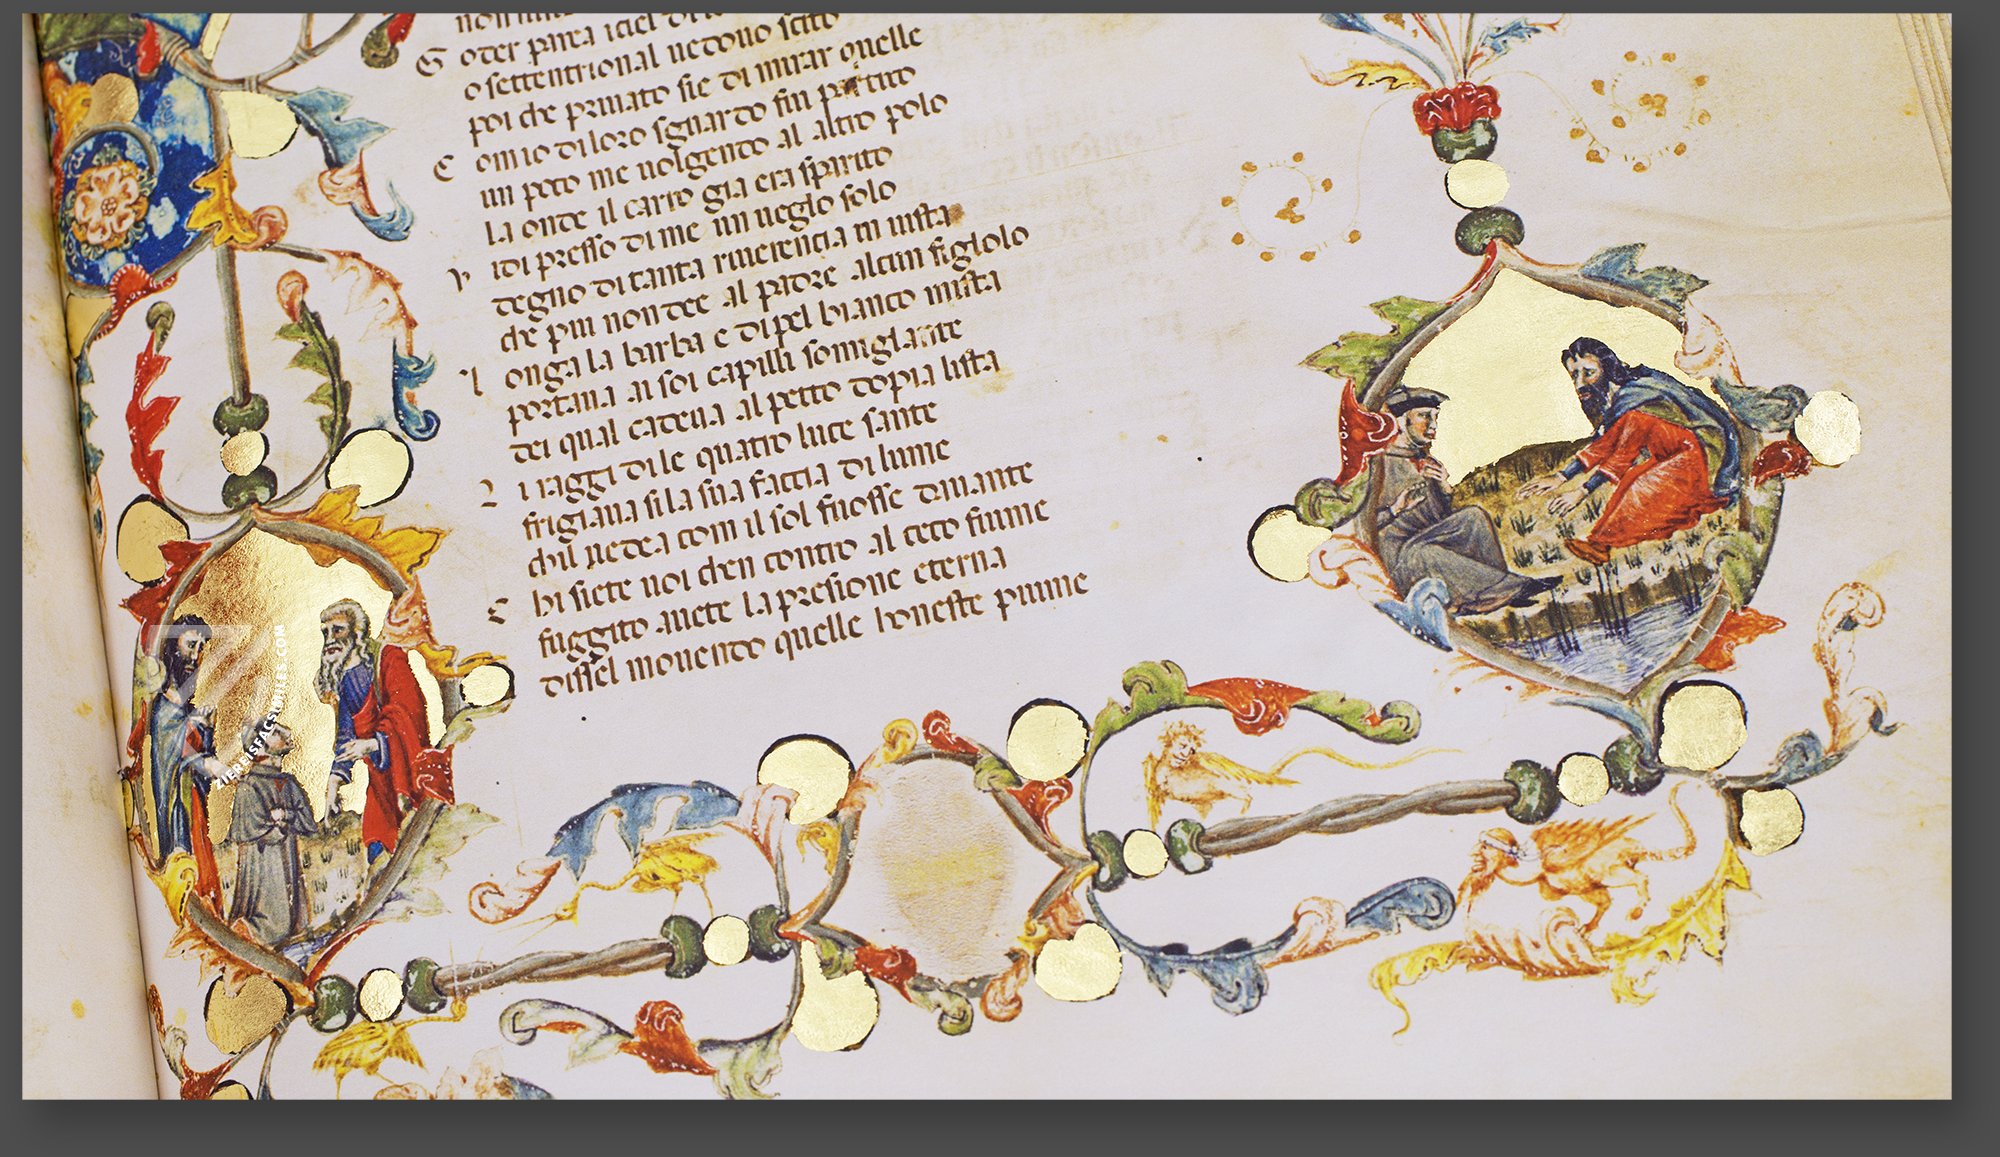 G oder parea i ciel di
o settentrional uedouo scito
poi che priuato sie di mirar quelle
C om io di loro sguardo fui partito
un poco me uolgendo al altro polo
la onde il carro gia era sparito
V idi presso di me un ueglo solo
degno di tanta riuerencia in uista
che piu non dee al padre alcun figlolo
L onga la barba e di pel bianco mista
portaua ai soi capilli somiglante
dei qual cadeua al petto dopia lista
L i raggi di le quatro luce sante
frigiaua si la sua faccia di lume
chil uedea com il sol fuosse dauante
C hi siete uoi chen contro al ceco fiume
fuggito auete la presione eterna
dissel mouendo quelle honeste piume
ZIEREISFACSIMILES.COM